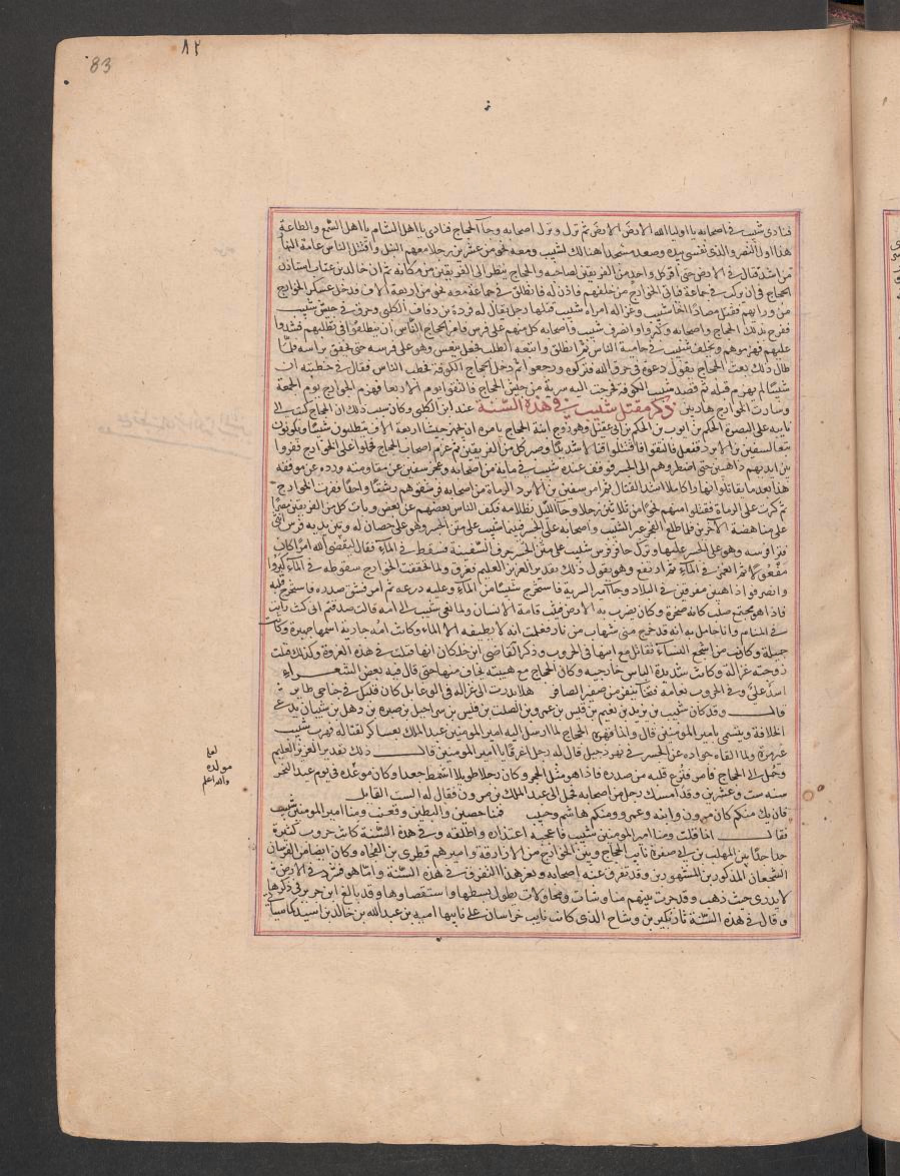 83
٨٢
فنادى شبيب في اصحابه يا اوليا الله الارض الارض ثم نزل ونزل اصحابه وجآ الحجاج فنادى يا اهل الشام يا اهل السمع والطاعة
هذا اول النصر والذى نفسى بيده وصعد مسجدا هنالك لشبيب ومعه نحو من عشرين رجلا معهم النبل واقتتل الناس عامة النهار
من اشد قتال في الارض حتى اقر كل واحد من الفريقين لصاحبه والحجاج ينظر الى الفريقين من مكانه ثم ان خالد بن عتاب استاذن
الحجاج في ان يركب في جماعة فياتى الخوارج من خلفهم فاذن له فانطلق في جماعة معه نحو من اربعة الاف فدخل عسكر الخوارج
من ورايهم فقتل مصادا اخا شبيب وغزاله امراة شبيب قتلها رجل يقال له فروة بن دفاف الكلبى وحرق في جيش شبيب
ففرح بذلك الحجاج واصحابه وكبروا وانصرف شبيب واصحابه كل منهم على فرس فامر الحجاج الناس ان ينطلقوا في تطلبهم فشدوا
عليهم فهزموهم وتخلف شبيب في حامية الناس ثم انطلق واتبعه الطلب فجعل ينعس وهو على فرسه حتى يخفق براسه فلما
طال ذلك بعث الحجاج يقول دعوه في حرق الله فتركوه ورجعوا ثم دخل الحجاج الكوفة فخطب الناس فقال في خطبته ان
شبيبا لم يهزم قبلها ثم قصد شبيب الكوفة فخرجت اليه سرية من جيش الحجاج فالتقوا يوم الاربعا فهزم الخوارج يوم الجمعة
وسارت الخوارج هاربين ذكر مقتل شبيب في هذه السنة عند ابن الكلبى وكان سبب ذلك ان الحجاج كتب الى
نايبه على البصرة الحكم بن ايوب بن الحكم بن ابى عقيل وهو زوج ابنة الحجاج يامره ان يجهز جيشا اربعة الاف يطلبون شبيبا ويكونون
تبعا لسفين بن الابرد ففعل فالتقوا فاقتتلوا قتالا شديدا وصبر كل من الفريقين ثم عزم اصحاب الحجاج فحملوا على الخوارج ففروا
بين ايديهم ذاهبين حتى اضطروهم الى الجسر فوقف عنده شبيب في ماية من اصحابه وعجز سفين عن مقاومته ورده عن موقفه
هذا بعد ما تقاتلوا نهارا كاملا اشد القتال ثم امر سفين بن الابرد الرماة من اصحابه فرشقوهم رشقا واحدا ففرت الخوارج
ثم كرت على الرماة فقتلوا منهم نحوا من ثلاثين رجلا وجا الليل بظلامه فكف الناس بعضهم عن بعض وبات كل من الفريقين مصرا
على مناهضة الاخر فلما طلع الفجر عبر شبيب واصحابه على الجسر فبينما شبيب على متن الجسر وهو على حصان له وبين يديه فرس انثى
فنزا فرسه وهو على الجسر عليها ونزل حافر فرس شبيب على متن الجسر حرف السفينة فسقط في المآء فقال ليقضى الله امرا كان
مفعولا ثم انغمر في المآء ثم ارتفع وهو يقول ذلك تقدير العزيز العليم فغرق ولما تحققت الخوارج سقوطه في المآء كبروا
وانصرفوا ذاهبين متفرقين في البلاد وجآ امير السرية فاستخرج شبيبا من المآء وعليه درعه ثم امر فشق صدره فاستخرج قلبه
فاذا هو مجتمع صلب كانه صخرة وكان يضرب به الارض فيثب قامة الانسان ولما نعى شبيب الى امه قالت صدقتم انى كنت رايت
في المنام وانا حامل به انه قد خرج منى شهاب من نار فعلمت انه لا يطفيه الا المآء وكانت امه جارية اسمها جهيرة وكانت
جميلة وكانت من اشجع النساء تقاتل مع ابنها في الحروب وذكر القاضى ابن خلكان انها قتلت في هذه الغزوة وكذلك قتلت
زوجته غزالة وكانت شديدة الباس خارجيه وكان الحجاج مع هيبته يخاف منها حتى قال فيه بعض الشعراء
اسد على وفى الحروب نعامة فتخآ تنفر من صفير الصافر هلا برزت الى غزالة في الوغا بل كان قلبك في جناحى طاير
قال وقد كان شبيب بن يزيد بن نعيم بن قيس بن عمرو بن الصلت بن قيس بن شراحيل بن صبرة بن ذهل بن شيبان يدعى
الخلافة ويتسمى بامير المومنين قال ولما قهر الحجاج لما ارسل اليه امير المومنين عبد الملك بعساكر لقتاله فهرب شبيب
غيرمرة ولما القاه جواده عن الجسر في نهر دجيل قال له رجل اغرقا يا امير المومنين قال ذلك تقدير العزيز العليم
وحمل الى الحجاج فامر فنزع قلبه من صدره فاذا هو مثل الحجر وكان رجلا طويلا اشمط جعدا وكان مولده في يوم عيد النحر
سنه ست وعشرين وقد امسك رجل من اصحابه فحمل الى عبد الملك بن مروان فقال له الست القايل
فان يك منكم كان مرون وابنه وعمرو ومنكم هاشم وحبيب فمنا حصين والبطين وقعنب ومنا امير المومنين شبيب
فقال انما قلت ومنا امير المومنين شبيب فاعجبه اعتذاره واطلقه وفى هذه السنة كانت حروب كثيرة
جدا جدا بين المهلب بن ابى صفرة نايب الحجاج وبين الخوارج من الازارقة واميرهم قطرى بن الفجاه وكان ايضا من الفرسان
الشجعان المذكورين المشهورين وقد تفرق عنه اصحابه ونفر هذا التفرق في هذه السنة واما هو فشرد في الارض
لا يدرى حيث ذهب وقد جرت بينهم مناوشات ومجاولات يطول بسطها واستقصاوها وقد بالغ ابن جرير في ذكرها
وقال في هذه السنة ثار بكير بن وشاح الذى كانت نايب خراسان على نايبها اميه بن عبد الله بن خالد بن اسيد
لعل
مولده
والله اعلم